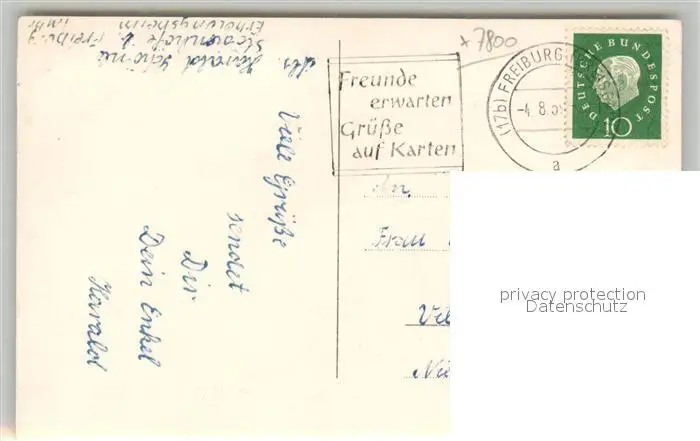 Freiburg
Erholungsheim
Abs. Harald
x 7800
Freunde
erwarten
Grüße
auf Karten
(17b) FREIBURG
-4.8.59
a
DEUTSCHE BUNDESPOST
10
Viele Grüße
sendet
Dir
Dein Enkel
Harald
An
Frau
privacy protection
Datenschutz